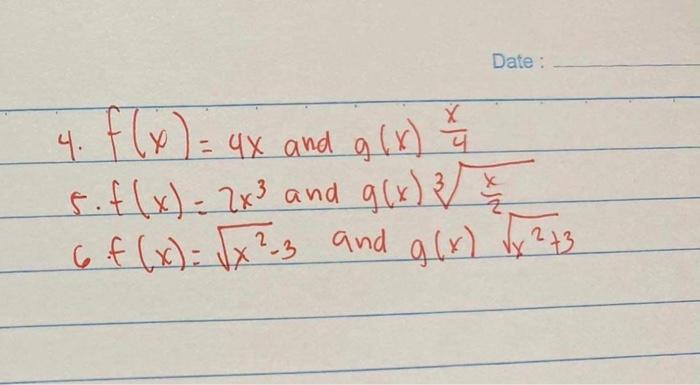 Date :
4. f(x) = 4x and g(x) x/4
5. f(x) = 2x³ and g(x) ∛(x/2)
6. f(x) = √x²-3 and g(x) √x²+3